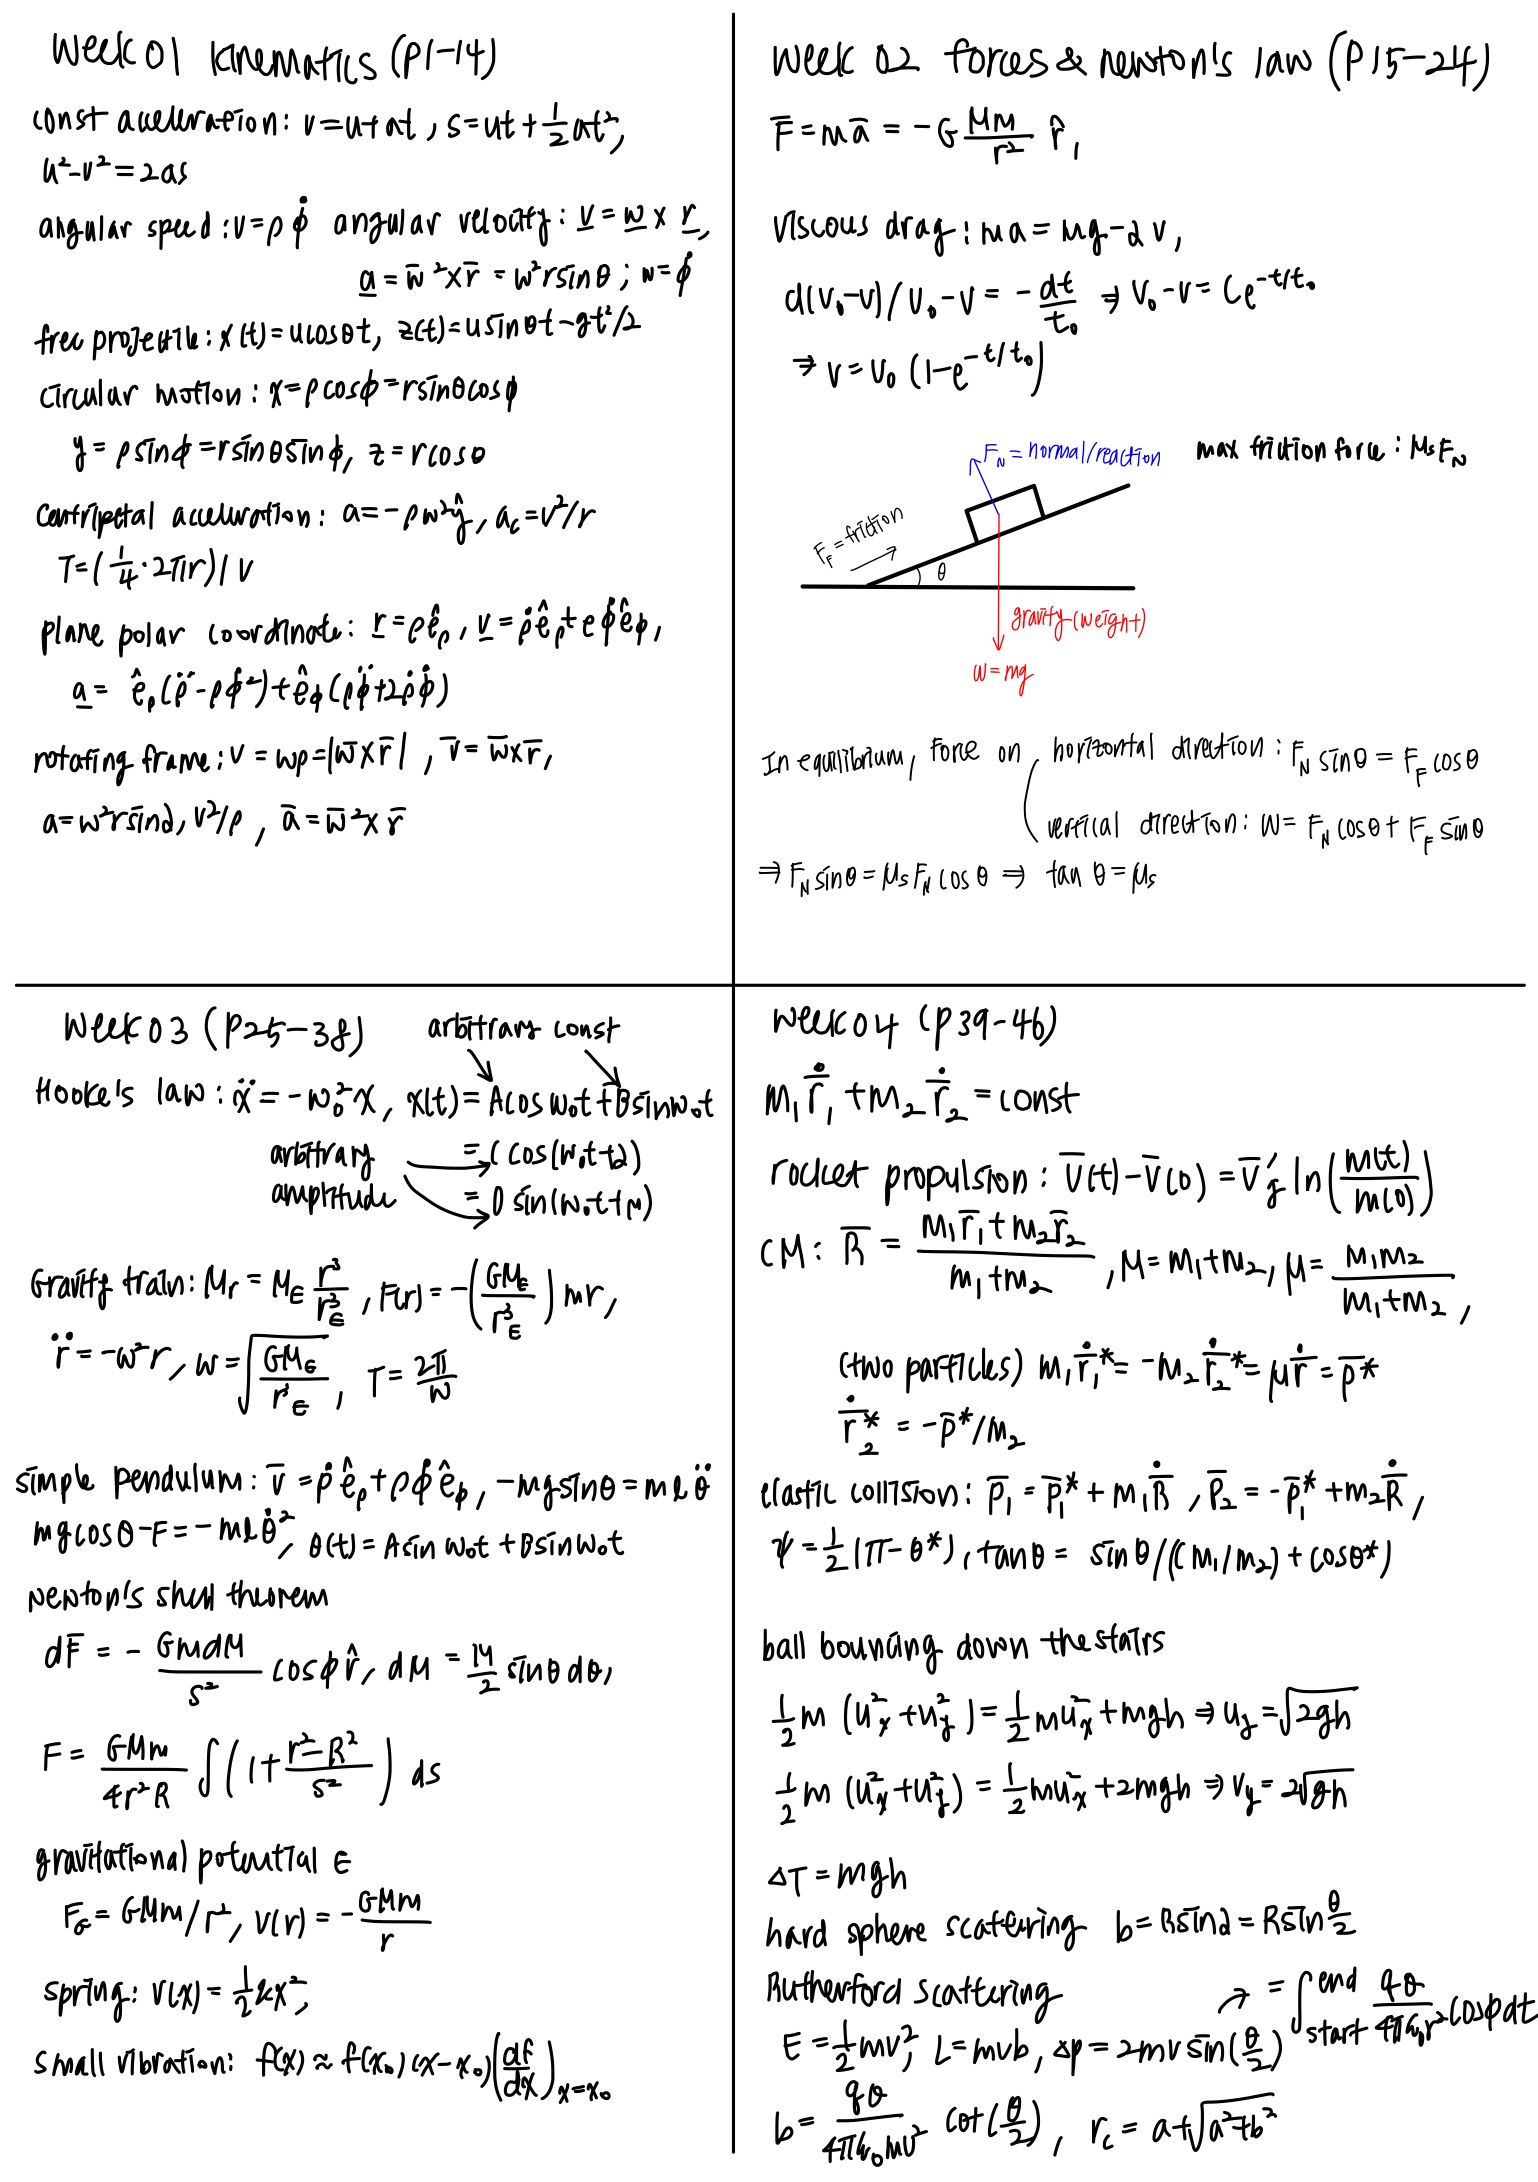 Week 01 kinematics (P1-14)
const acceleration: v=u+at, s=ut+½at²,
u²-v²=2as
angular speed: v=ρφ̇ angular velocity: v̲=w̲×r̲,
a̲=w̄²×r̄=w²rsinθ; w=φ̇
free projectile: x(t)=ucosθt, z(t)=usinθt-gt²/2
circular motion: x=ρcosφ=rsinθcosφ
y=ρsinφ=rsinθsinφ, z=rcosθ
Centripetal acceleration: a=-ρw²ŷ, a_c=v²/r
T=(¼·2πr)/v
plane polar coordinate: r̲=ρê_ρ, v̲=ρ̇ê_ρ+eφ̇ê_φ,
a̲=ê_ρ(ρ̈-ρφ̇²)+ê_φ(ρφ̈+2ρ̇φ̇)
rotating frame: v=wρ=|w̄×r̄|, v̄=w̄×r̄,
a=w²rsinα, v²/ρ, ā=w̄²×r̄
Week 02 forces & newton's law (P15-24)
F̄=mā=-G Mm/r² r̂,
Viscous drag: ma=mg-αv,
d(v₀-v)/v₀-v=-dt/t₀ ⇒ v₀-v=Ce^(-t/t₀)
⇒ v=v₀(1-e^(-t/t₀))
F_N=normal/reaction
max friction force: μ_s F_N
F_F=friction
θ
gravity(weight)
w=mg
In equilibrium, Force on horizontal direction: F_N sinθ=F_F cosθ
vertical direction: W=F_N cosθ+F_F sinθ
⇒ F_N sinθ=μ_s F_N cosθ ⇒ tanθ=μ_s
Week 03 (P25-38)
arbitrary const
Hooke's law: ẍ=-w₀²x, x(t)=Acosw₀t+Bsinw₀t
arbitrary =C cos(w₀t-α)
amplitude =D sin(w₀t+μ)
Gravity train: M_r=M_E r³/r_E³, F(r)=-(GM_E/r_E³)mr,
r̈=-w²r, w=√(GM_E/r_E³), T=2π/w
simple pendulum: v̄=ρ̇ê_ρ+ρφ̇ê_φ, -mgsinθ=mℓθ̈
mgcosθ-F=-mℓθ̇², θ(t)=Asinw₀t+Bsinw₀t
newton's shell theorem
dF̄=-GmdM/s² cosφ r̂, dM=M/2 sinθdθ,
F=GMm/4r²R ∫(1+(r²-R²)/s²)ds
gravitational potential E
F_G=GMm/r², V(r)=-GMm/r
spring: V(x)=½kx²,
small vibration: f(x)≈f(x₀)(x-x₀)(df/dx)_x=x₀
Week 04 (P39-46)
m₁r̄̇₁+m₂r̄̇₂=const
rocket propulsion: v̄(t)-v̄(0)=v̄'_g ln(m(t)/m(0))
CM: R̄=(m₁r̄₁+m₂r̄₂)/(m₁+m₂), M=m₁+m₂, μ=m₁m₂/(m₁+m₂),
(two particles) m₁r̄̇₁*=-m₂r̄̇₂*=μr̄̇=p̄*
r̄̇₂*=-p̄*/m₂
elastic collision: p̄₁=p̄₁*+m₁R̄̇, p̄₂=-p̄₁*+m₂R̄̇,
ψ=½(π-θ*), tanθ=sinθ/((m₁/m₂)+cosθ*)
ball bouncing down the stairs
½m(u_x²+u_y²)=½mu_x²+mgh ⇒ u_y=√(2gh)
½m(u_x²+u_y²)=½mu_x²+2mgh ⇒ v_y=2√(gh)
ΔT=mgh
hard sphere scattering b=Rsinα=Rsin θ/2
Rutherford scattering =∫_start^end qQ/4πε₀r² cosφdt
E=½mv², L=mvb, Δp=2mvsin(θ/2)
b=qQ/4πε₀mv² cot(θ/2), r_c=a+√(a²+b²)